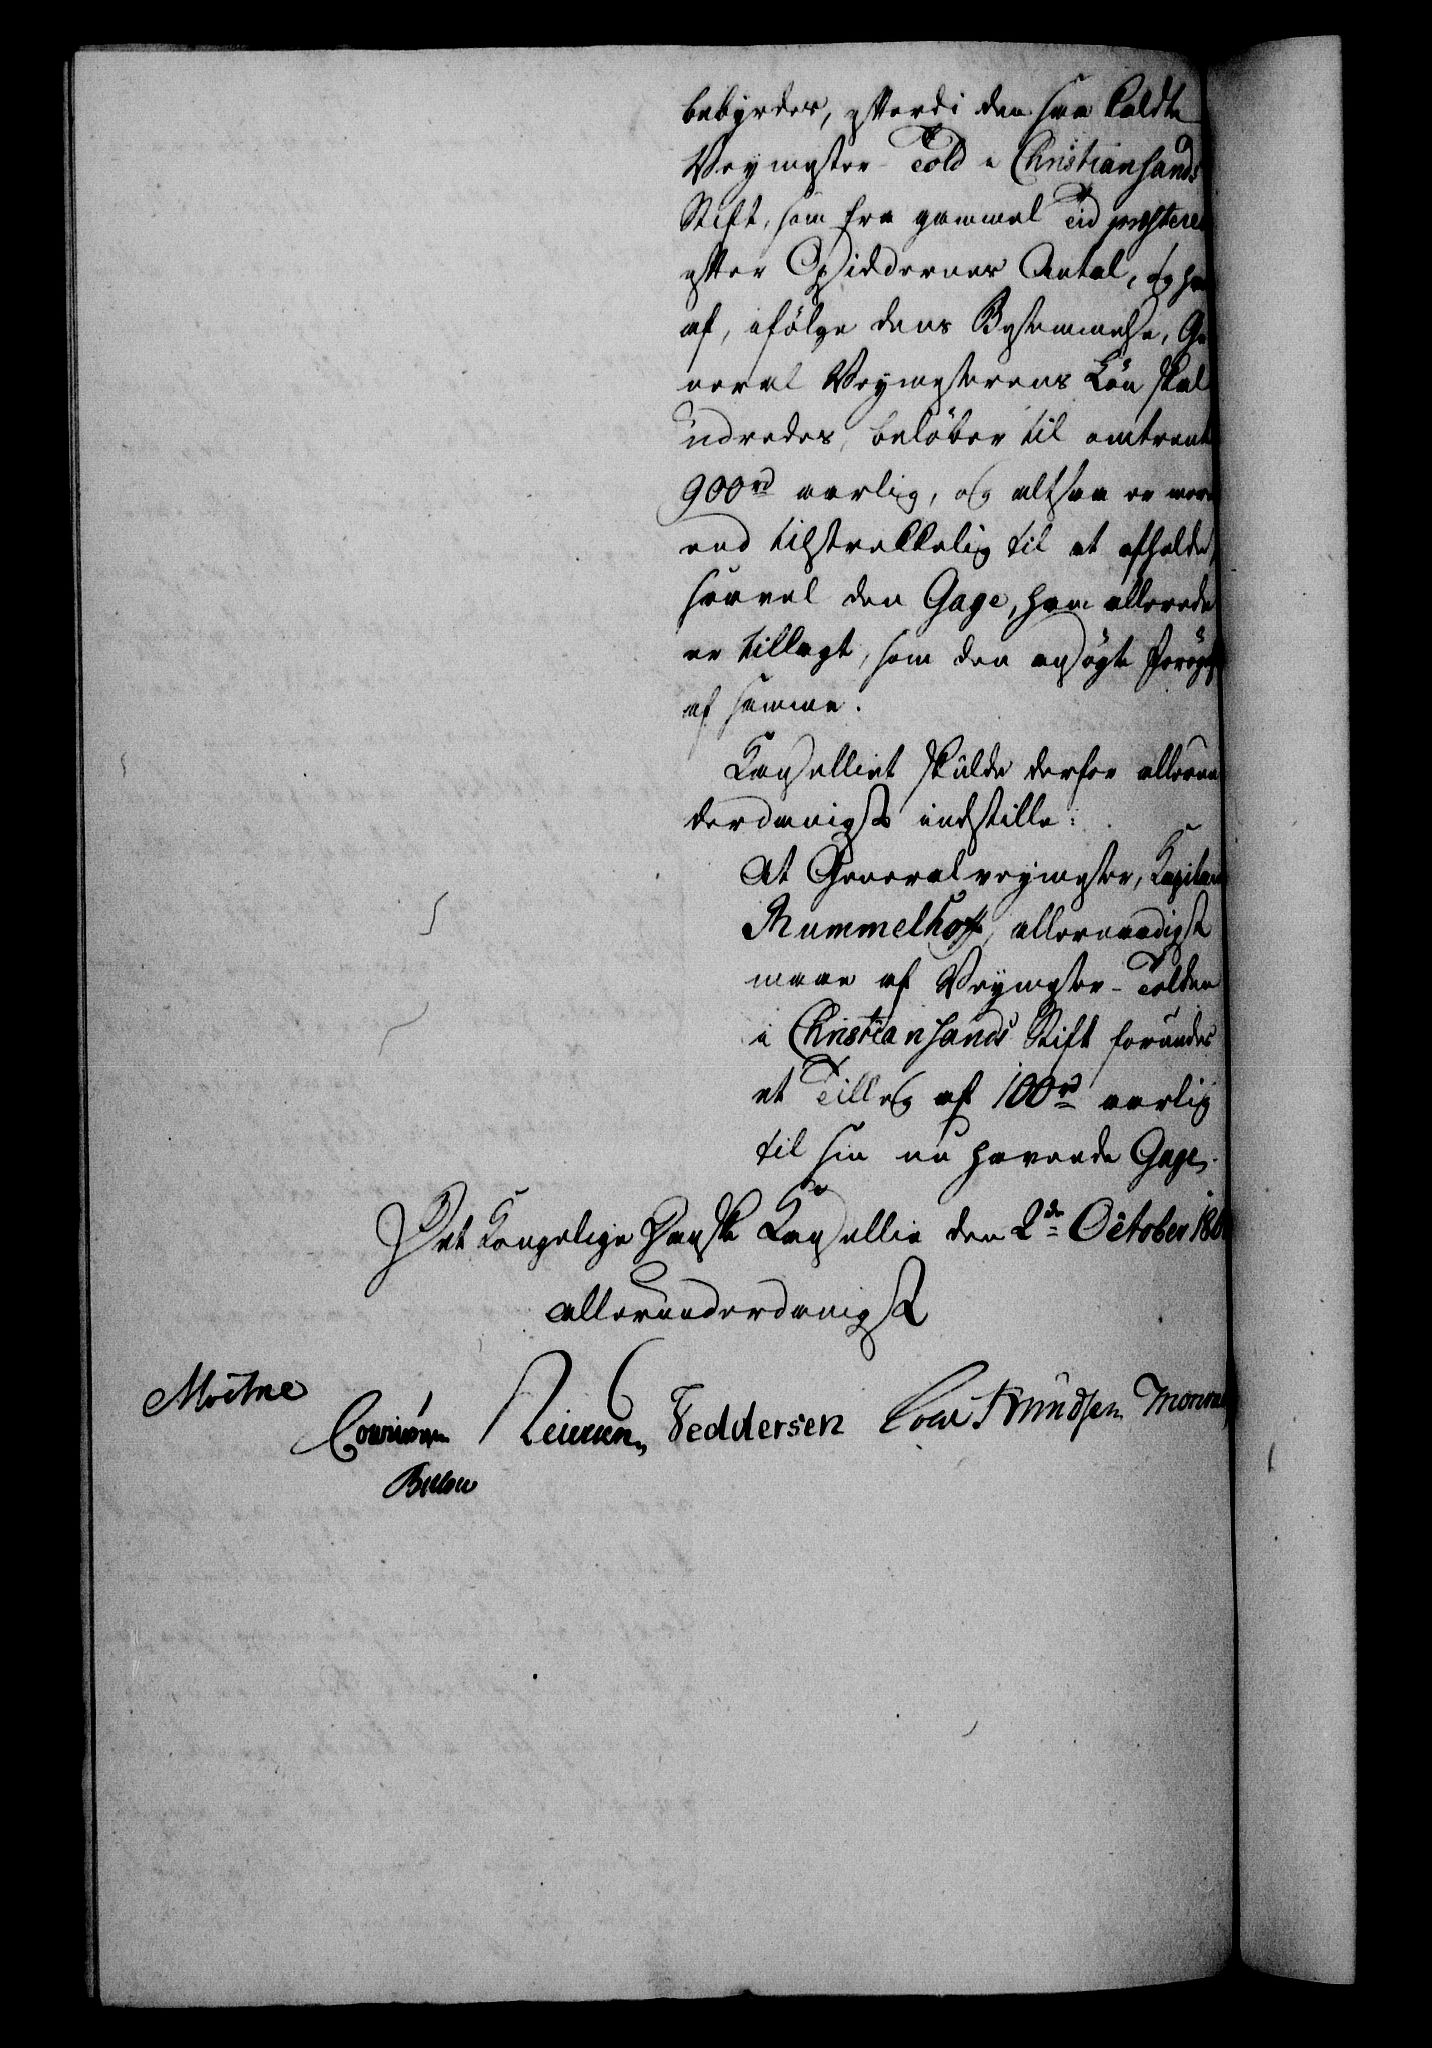 bebyrdes, efterdi den saa kaldte
Veymester-Told i Christiansands
Stift, som fra gammel Tid præstere
efter Antal, og
af, ifölge dens Bestemmelse, Ge
neral Veymesterens Lön skal
udredes, belöber til omtrent
900 rd aarlig, og altsaa er mere
end tilstrekkelig til at afholde,
saavel den Gage, ham allerede
er tillagt, som den ansögte Forögelse
af samme.
Kanselliet skulde derfor allerun
derdanigst indstille:
At Generalveymester, Kapitain
Rummelhoff, allernaadigst
maae af Veymester-Tolden
i Christiansands Stift forundes
et Tilleg af 100 rd aarlig
til sin nu havende Gage.
Det Kongelige Danske Kansellie den 2de October 18
allerunderdanigst
Moltke
Feddersen Knudsen Monrad
Bülow